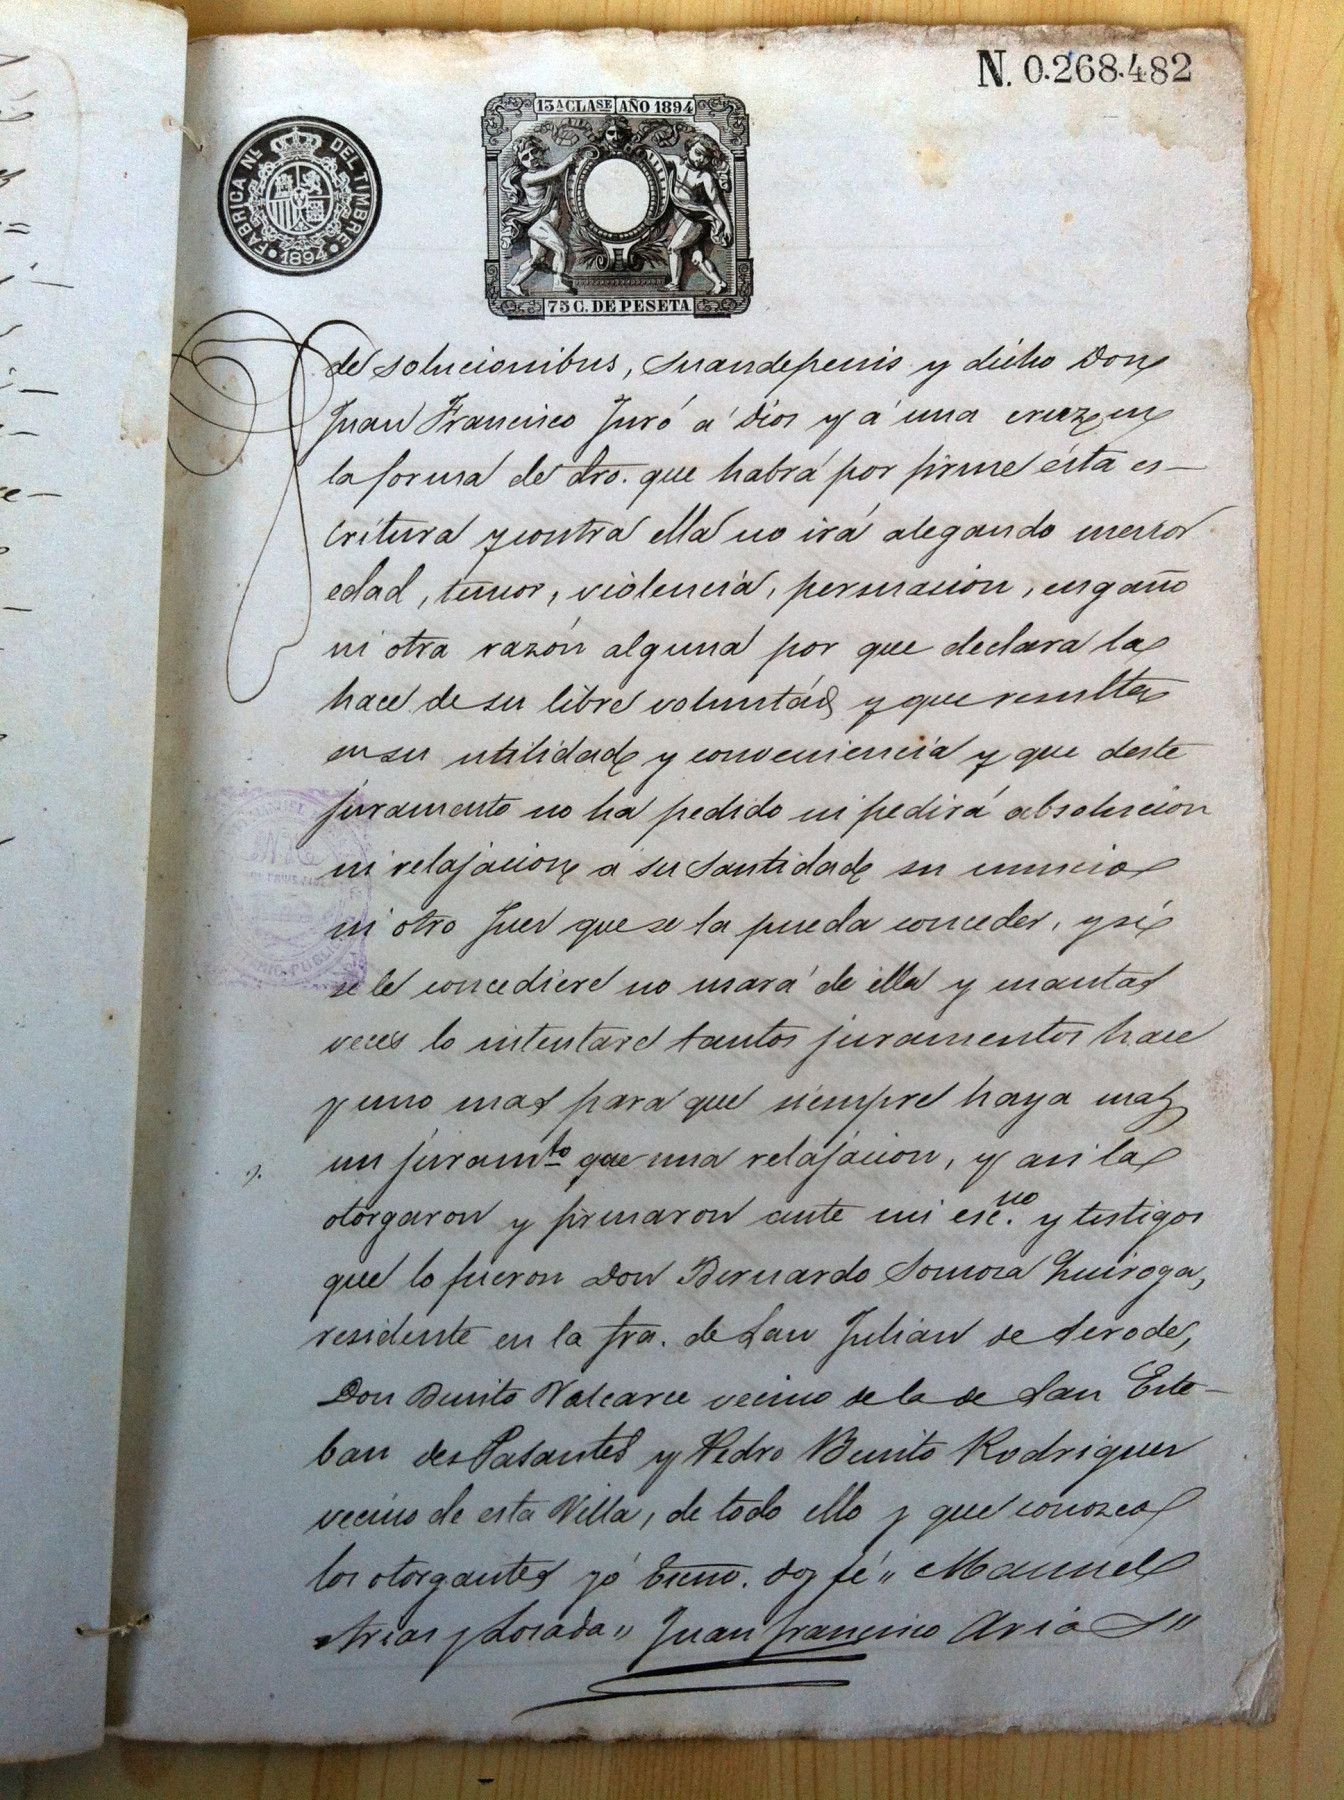 N. 0.268.482
13ª CLASE AÑO 1894
FABRICA Nª DEL TIMBRE
1894
75 C. DE PESETA
de solucionibus, suandepenis y dicho Don
Juan Francisco Juró á Dios y á una cruz en
la forma de dro. que habrá por firme ésta es-
critura y contra ella no irá alegando menor
edad, temor, violencia, persuasion, engaño
ni otra razón alguna por que declara la
hace de su libre voluntád y que resulta
en su utilidad y conveniencia y que deste
juramento no ha pedido ni pedirá absolucion
ni relajacion a su Santidad su nuncio
ni otro Juez que se la pueda conceder, y si
se le concediere no usará de ella y cuantas
veces lo intentare tantos juramentos hace
y uno mas para que siempre haya mas
un juramto que una relajacion, y asi la
otorgaron y firmaron ante mi esc.no y testigos
que lo fueron Don Bernardo Somoza Quiroga,
residente en la fra. de San Julian de
Don Benito Valcarce vecino de la de San Este-
ban des Pasantes y Pedro Benito Rodriguez
vecino de esta Villa, de todo ello y que conozco
los otorgantes yó Esno. doy fé " Manuel
Arias y Losada " Juan francisco Arias "